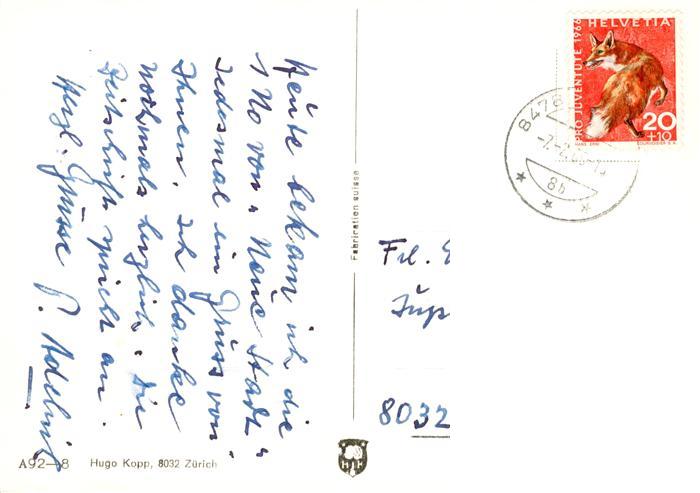 Heute bekam ich die
1 No von „Neue Stadt"
Jedesmal ein Gruss von
Ihnen. Ich danke
nochmals herzlich. Die
Zeitschrift spricht an.
Herzl. Grüsse P. Adelin
A92–8 Hugo Kopp, 8032 Zürich
Fabrication suisse
H K
HELVETIA
PRO JUVENTUTE 1966
20
+10
HANS ERNI
COURVOISIER S.A.
8476
-7.-2.
8h
Frl.
8032